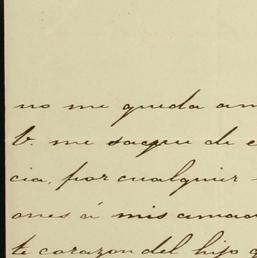 no me queda am
b. me saque de e
cia, por cualquier
ones á mis amad
te corazon del hijo q